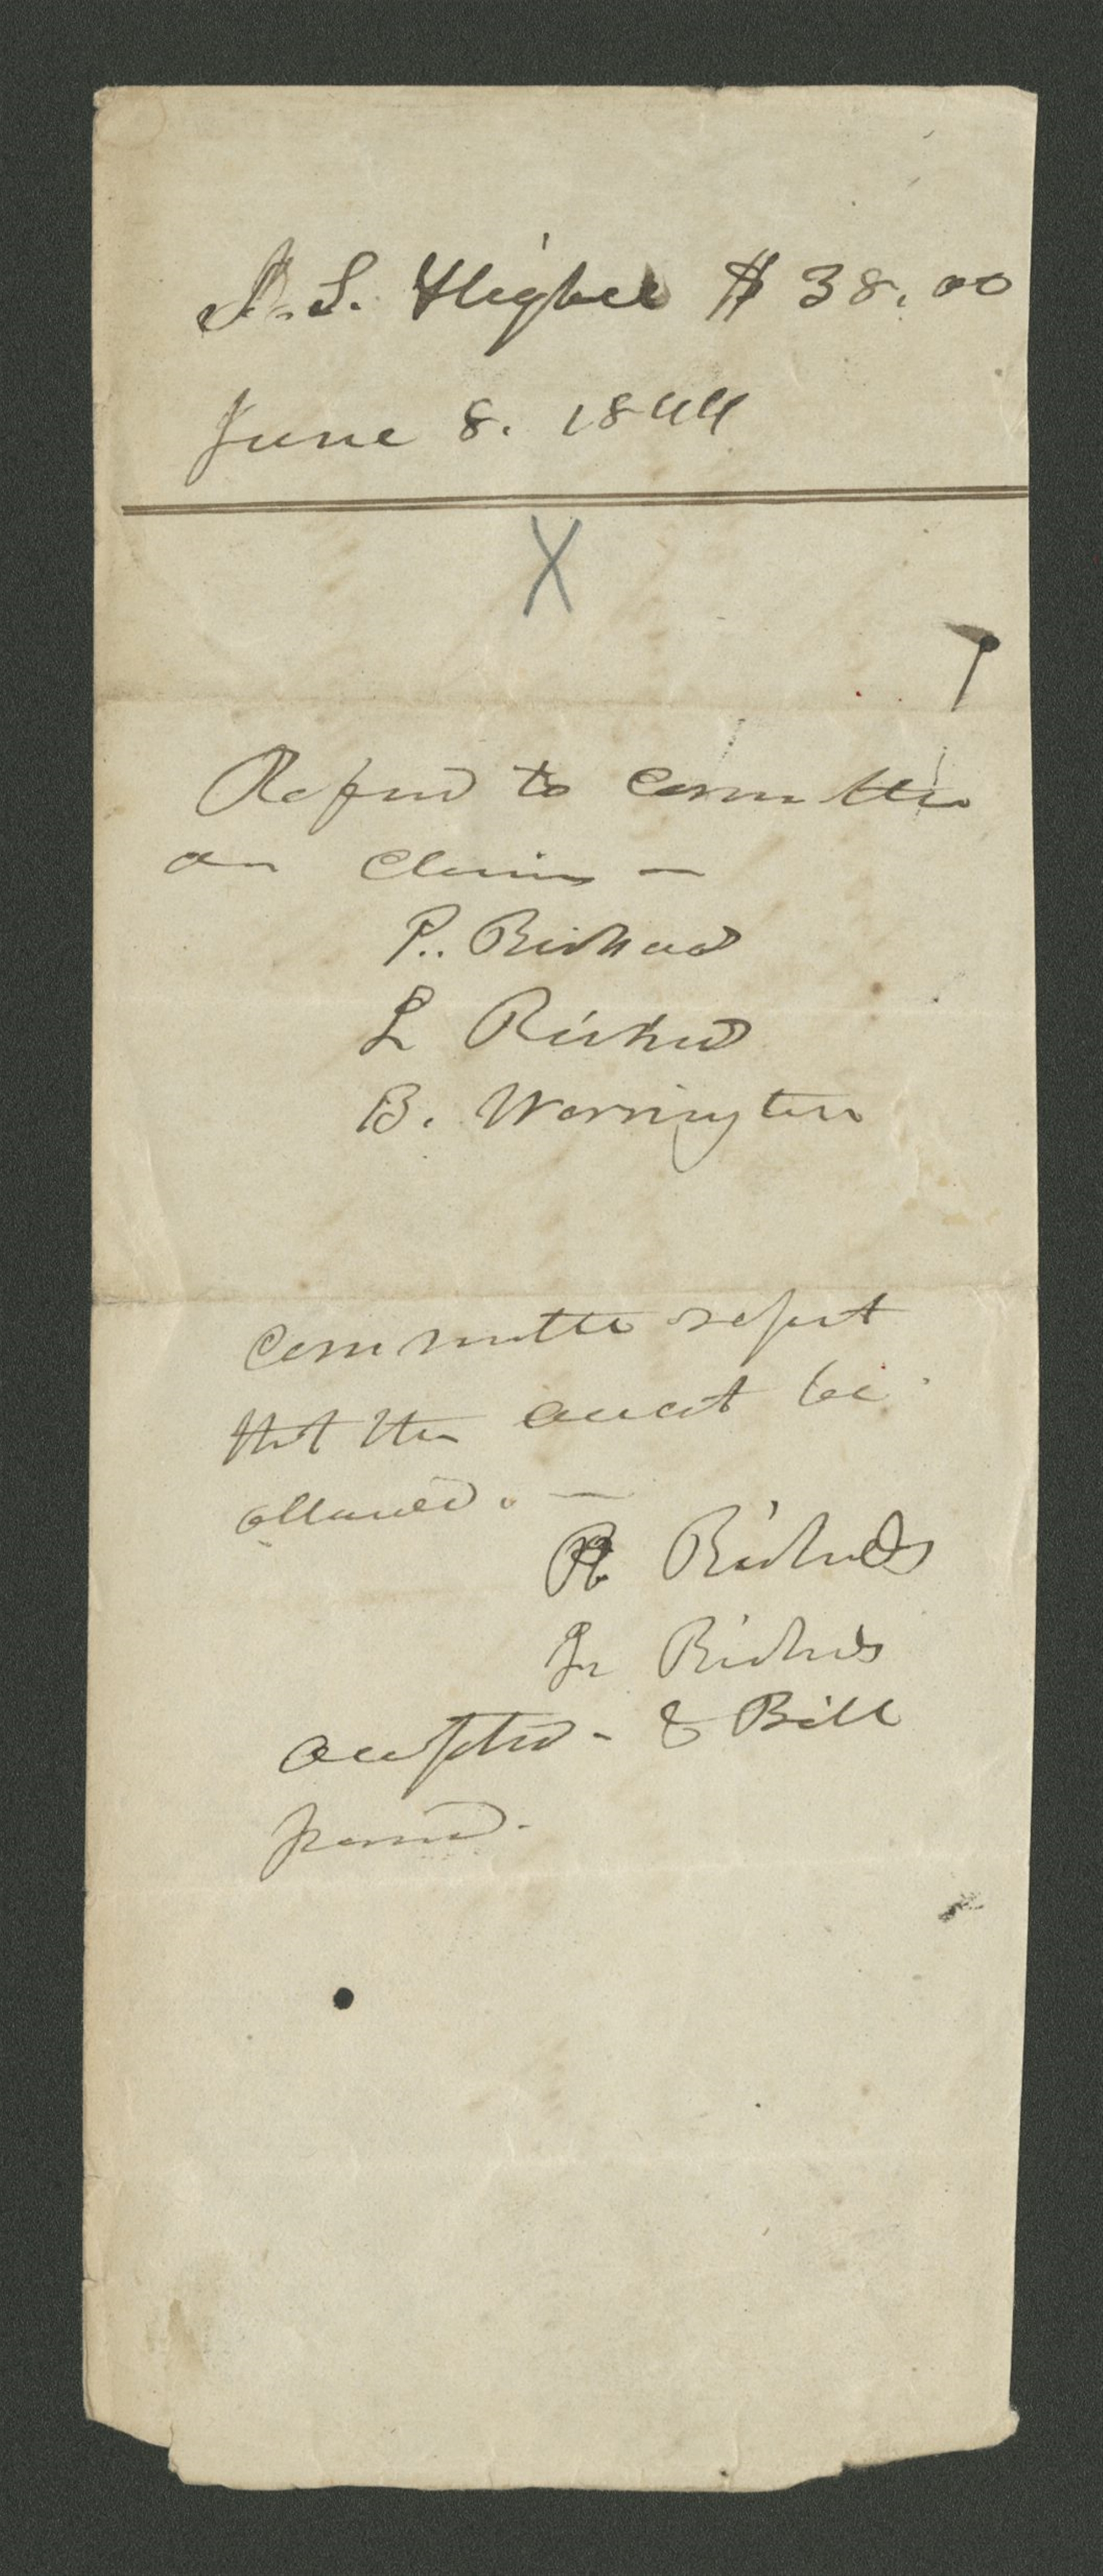 S. Higbee $ 38.00
June 8. 1844
X
Referd to committee
on claims —
P. Richards
L Richards
B. Warrington
Committee report
that the accout be
allowed. —
P Richards
L Richards
accepted - & Bill
pasd.